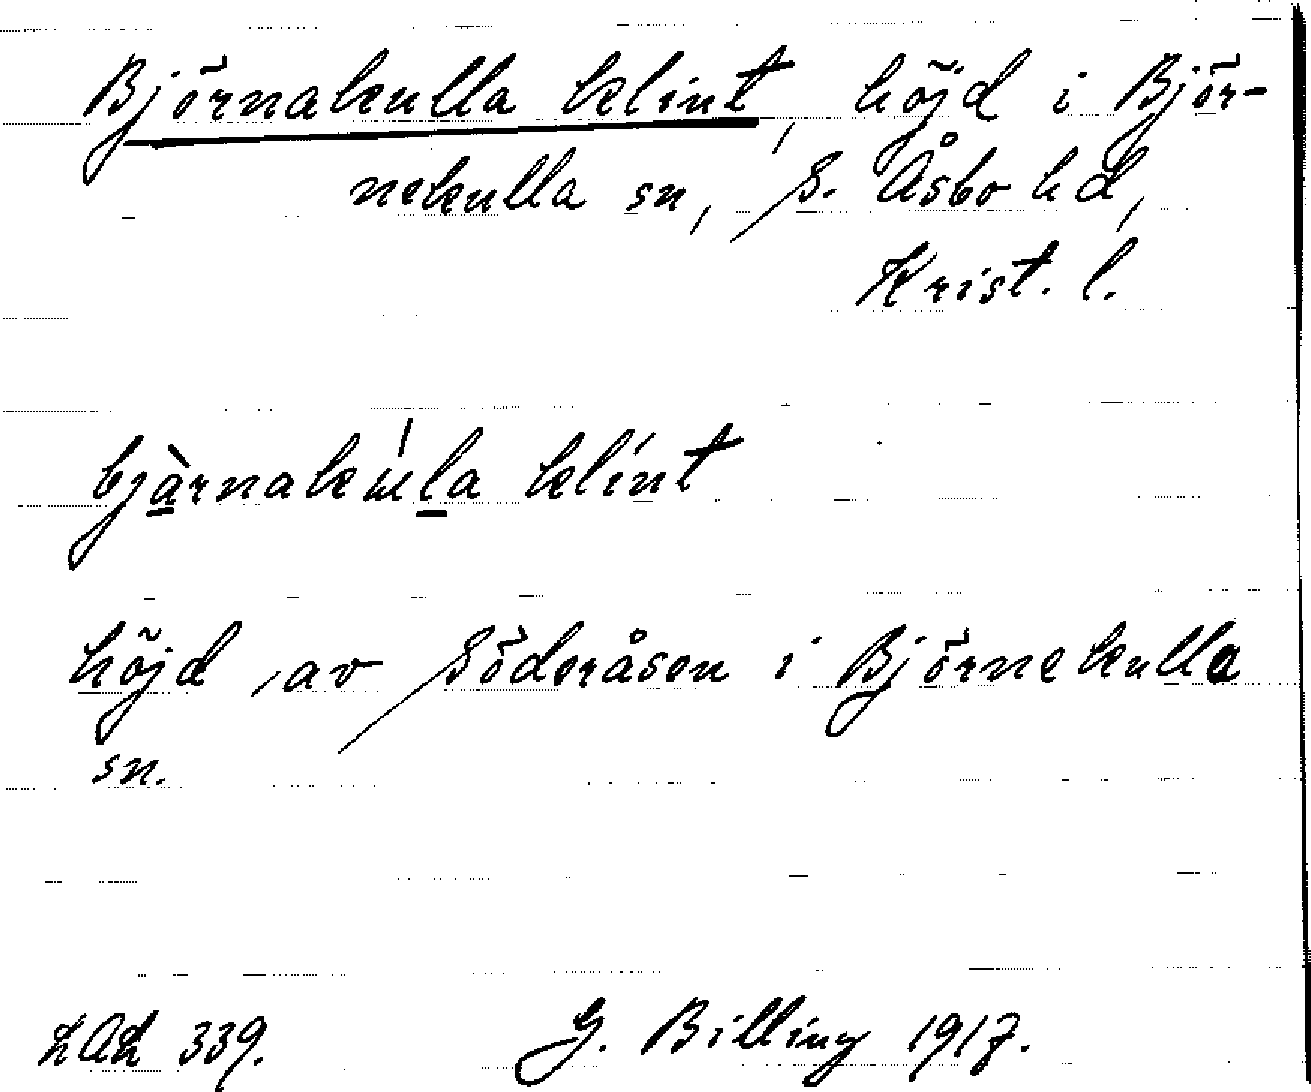 Björnakulla klint, höjd i Björ-
nekulla sn, S. Åsbo hd,
Krist. l.
bjàrnakúla klint
höjd av Söderåsen i Björnekulla
sn.
LAL 339. G. Billing 1917.